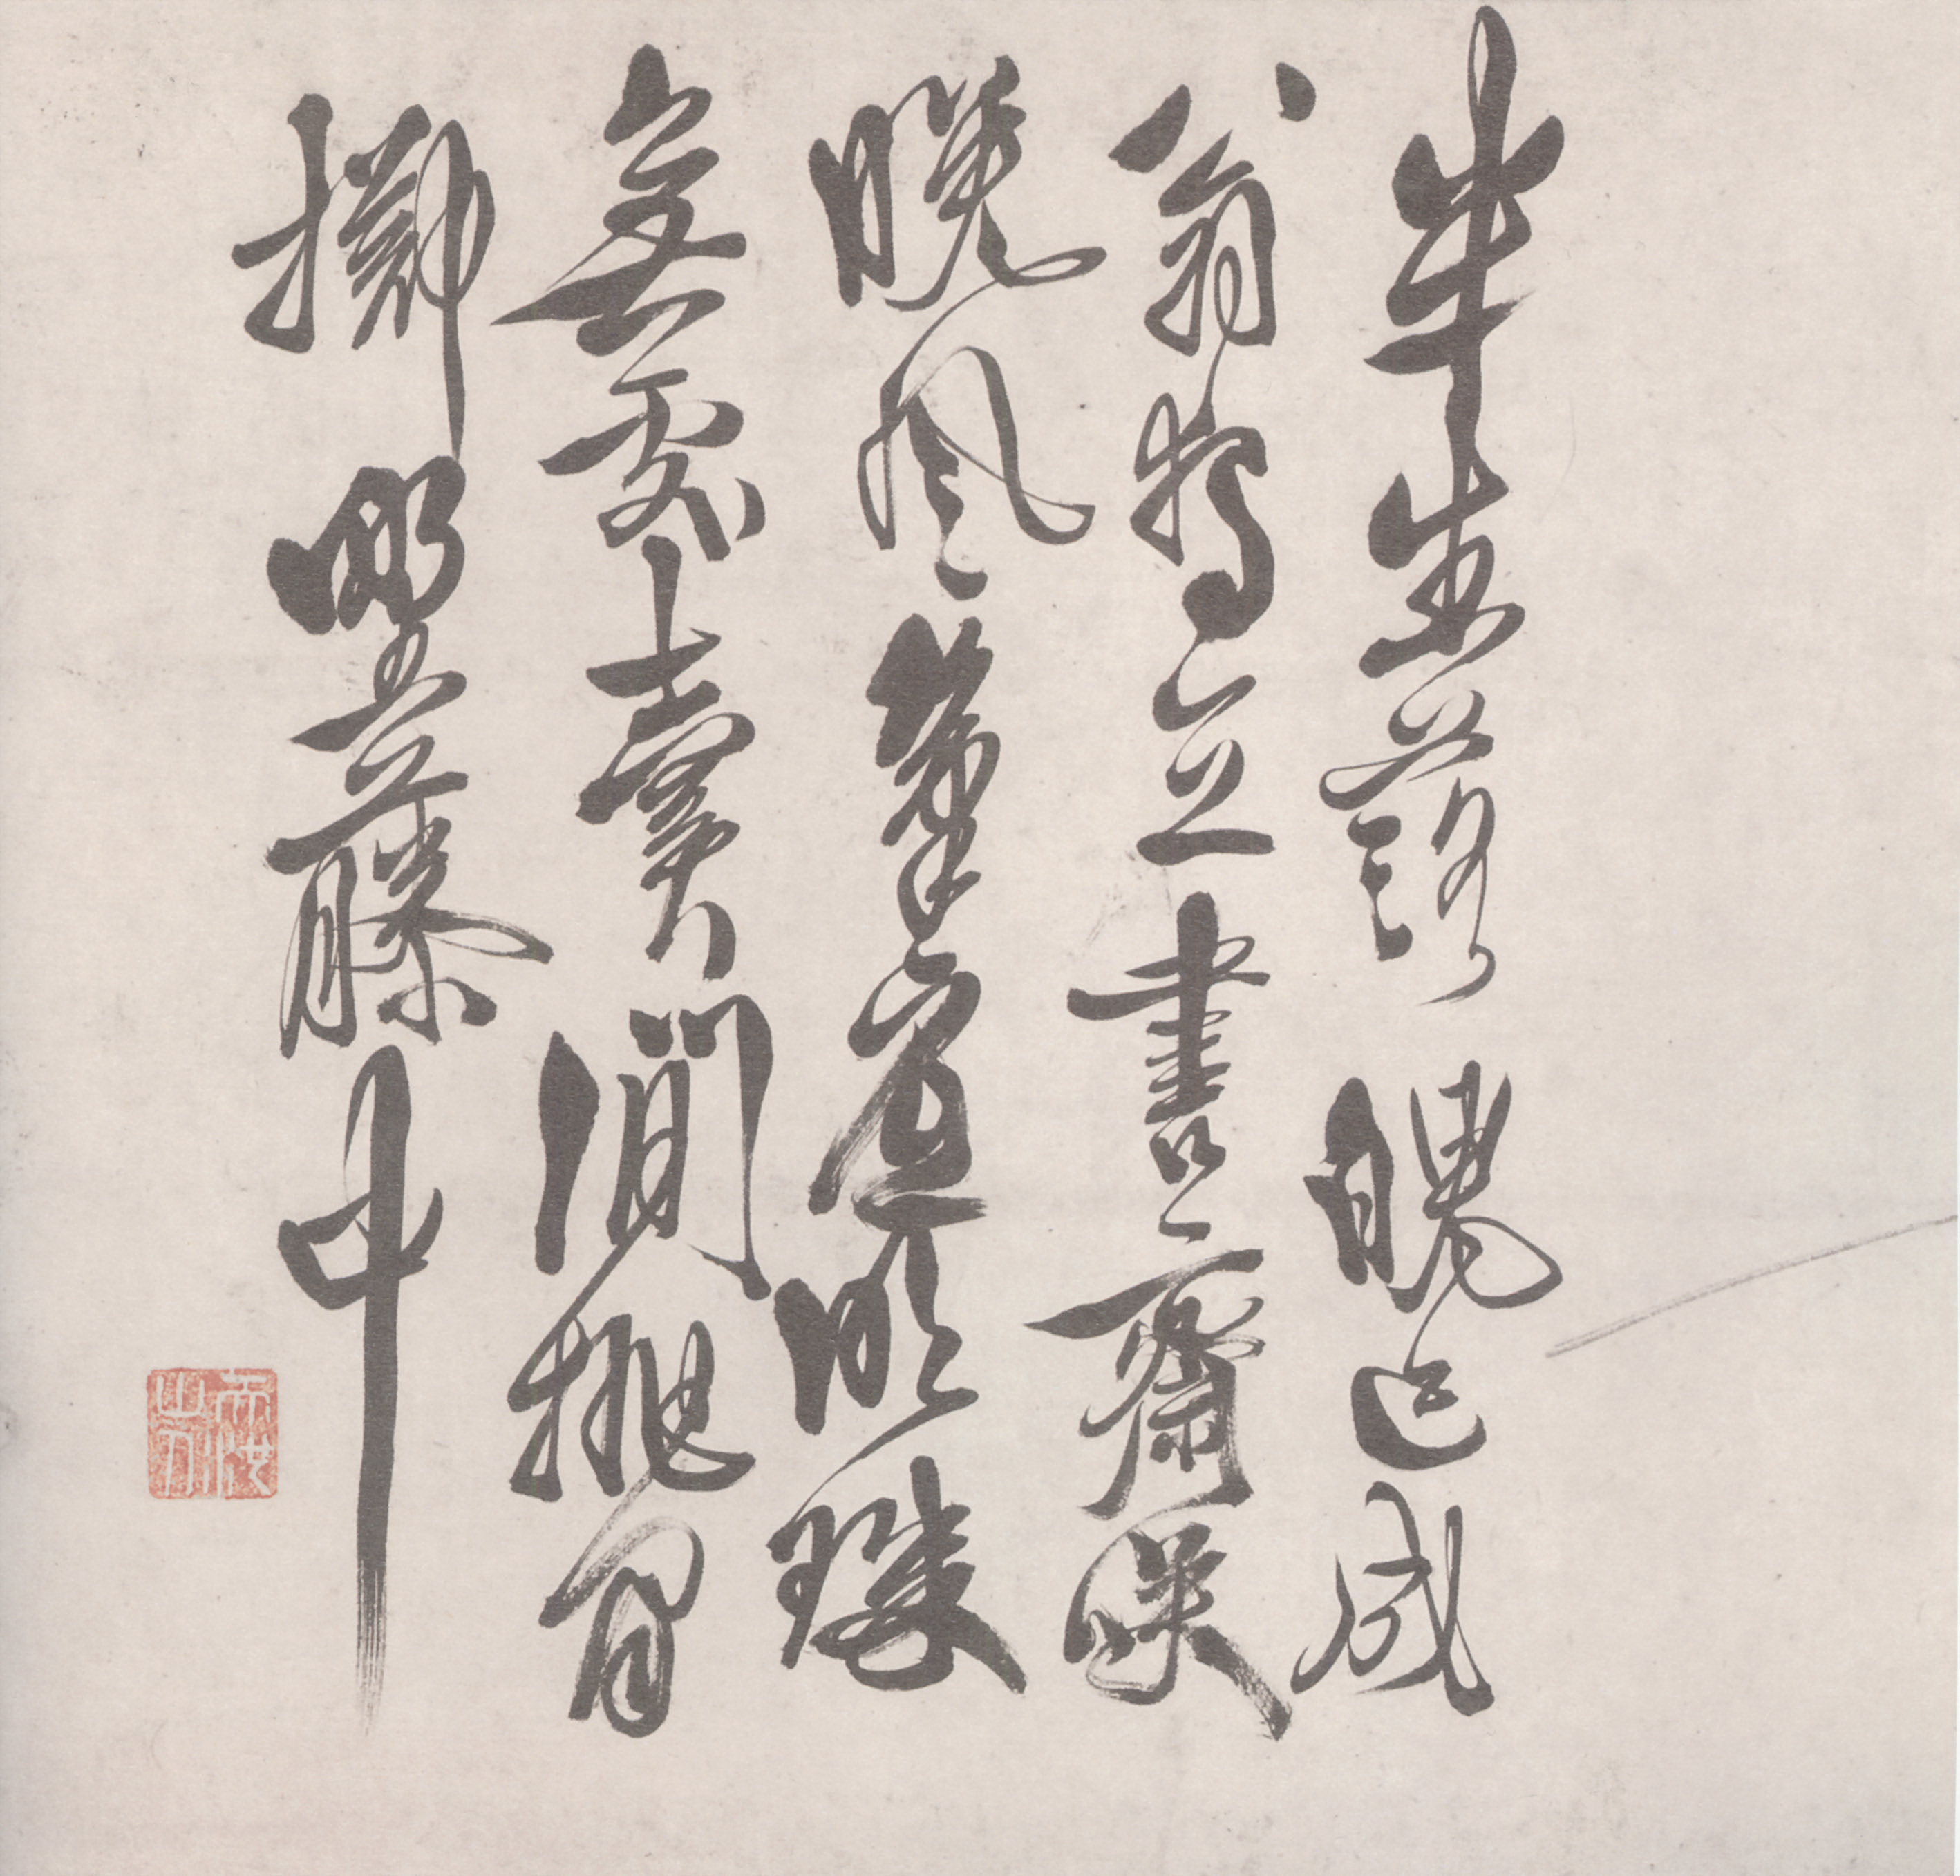 半生落魄已成
翁獨立書齋嘯
晚風筆底明珠
無處賣閒拋閒
擲野藤中